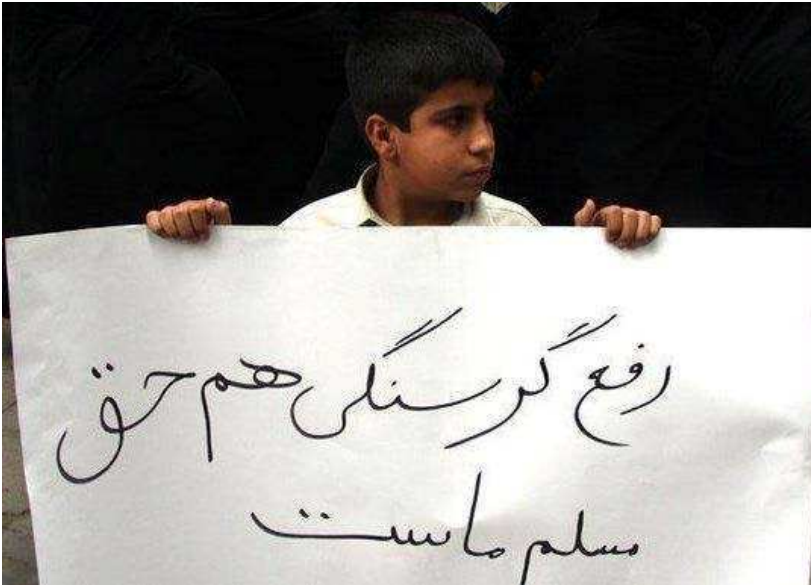 رفع گرسنگی هم حق
مسلم ماست